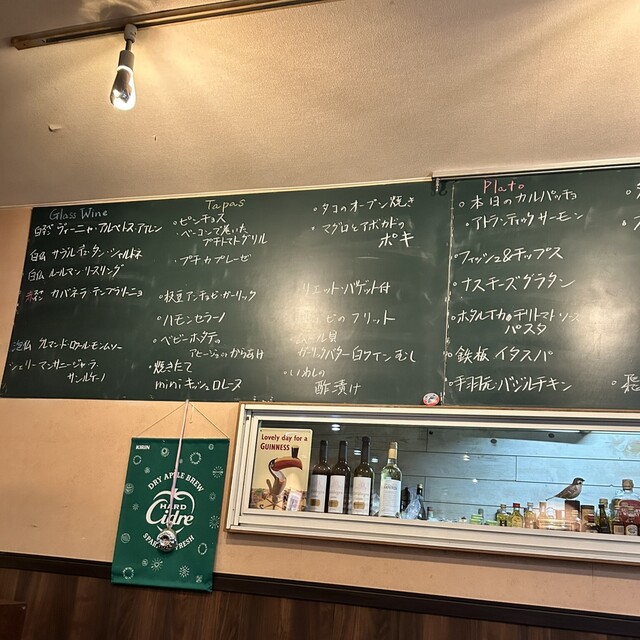 Glass Wine
白
ヴィーニャ・アルベトス・アイレン
白仏
シャルドネ
白仏 ルールマン リースリング
カバネラ・テンプラリーニョ
泡仏 クレマン・ド・ロワール・モンムソー
シェリー マンサニージャ・ラ・
サンルケーノ
Tapas
・ピンチョス
・ベーコンで巻いた
プチトマトグリル
・プチカプレーゼ
・枝豆アンチョビ・ガーリック
・ハモンセラーノ
・ベビーホタテの
アヒージョ からあげ
・焼きたて
mini キッシュロレーヌ
・タコのオーブン焼き
・マグロとアボカドの
ポキ
リエット・バゲット付
ビのフリット
貝
ガーリックバター白ワインむし
・いわしの
酢漬け
Plato
・本日のカルパッチョ
・アトランティックサーモン
・フィッシュ&チップス
・ナスチーズグラタン
・ホタルイカのチリトマトソース
パスタ
・鉄板イタスパ
・手羽元バジルチキン
KIRIN
DRY APPLE BREW
HARD
Cidre
SPARK FRESH
Lovely day for a
GUINNESS